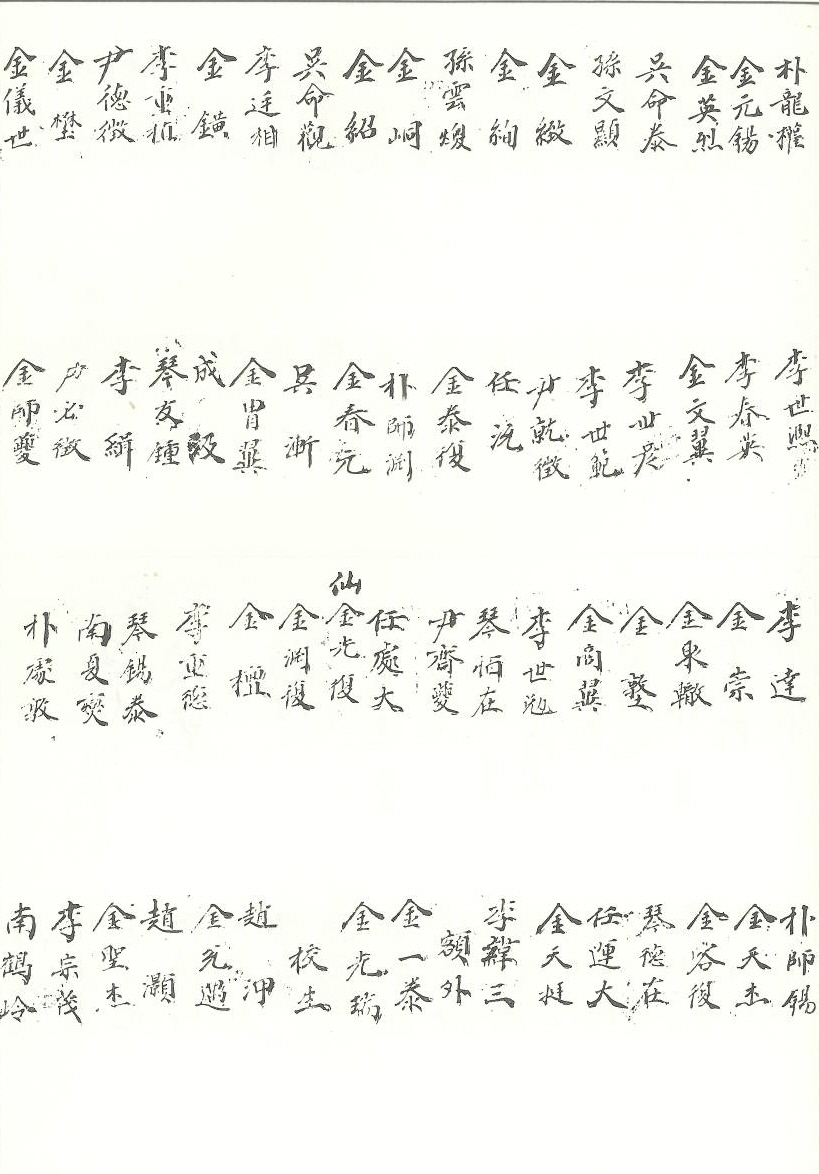 朴龍
金元錫
金英烈
吳命泰
孫文顯
金緻
金絢
孫雲煥
金峒
金紹
吳命觀
李廷相
金鐄
李重植
尹德徵
金懋
金儀世
李世熙
李泰英
金文翼
李世彦
李世範
尹乾徵
任沆
金泰復
朴師淵
金春元
吳漸
金胄翼
成級
琴友鍾
李緝
尹必徵
金師夔
李達
金崇
金東轍
金墪
金商翼
李世勉
琴恒在
尹齊夔
任處大
仙
金光復
金淵復
金檀
李重
琴錫泰
南夏燮
朴處敬
朴師錫
金天杰
金啓復
琴德在
任運大
金天挺
李鏵三
額外
金一泰
金光瑞
校生
趙沖
金光
趙灝
金聖杰
李宗茂
南鶴岭